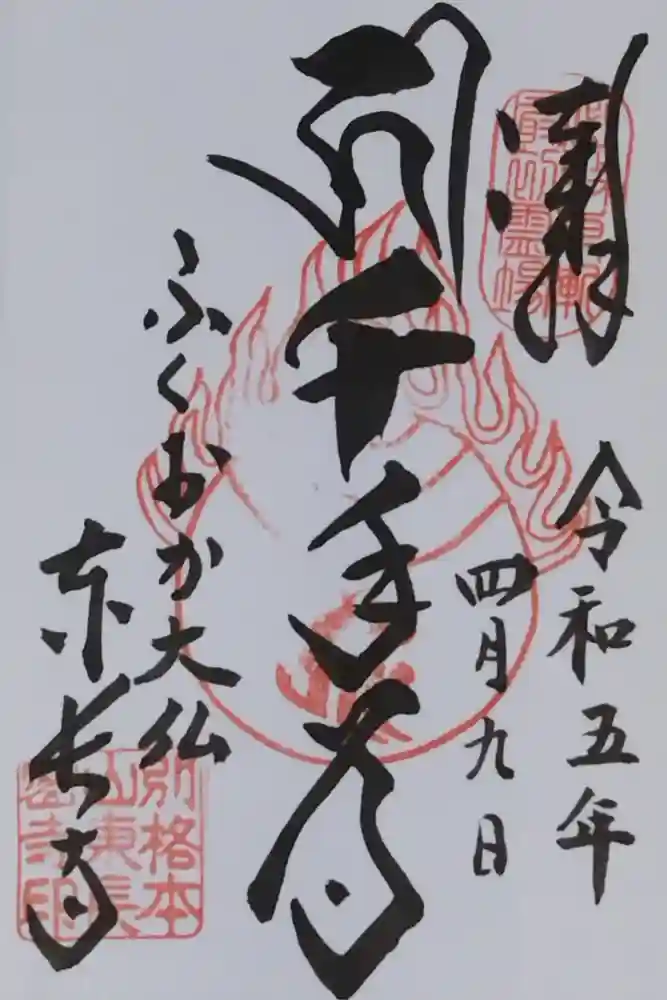 最初霊場
令和五年
四月九日
千手尊
ふくおか大仏
東長寺
別格本
山東長
密寺印